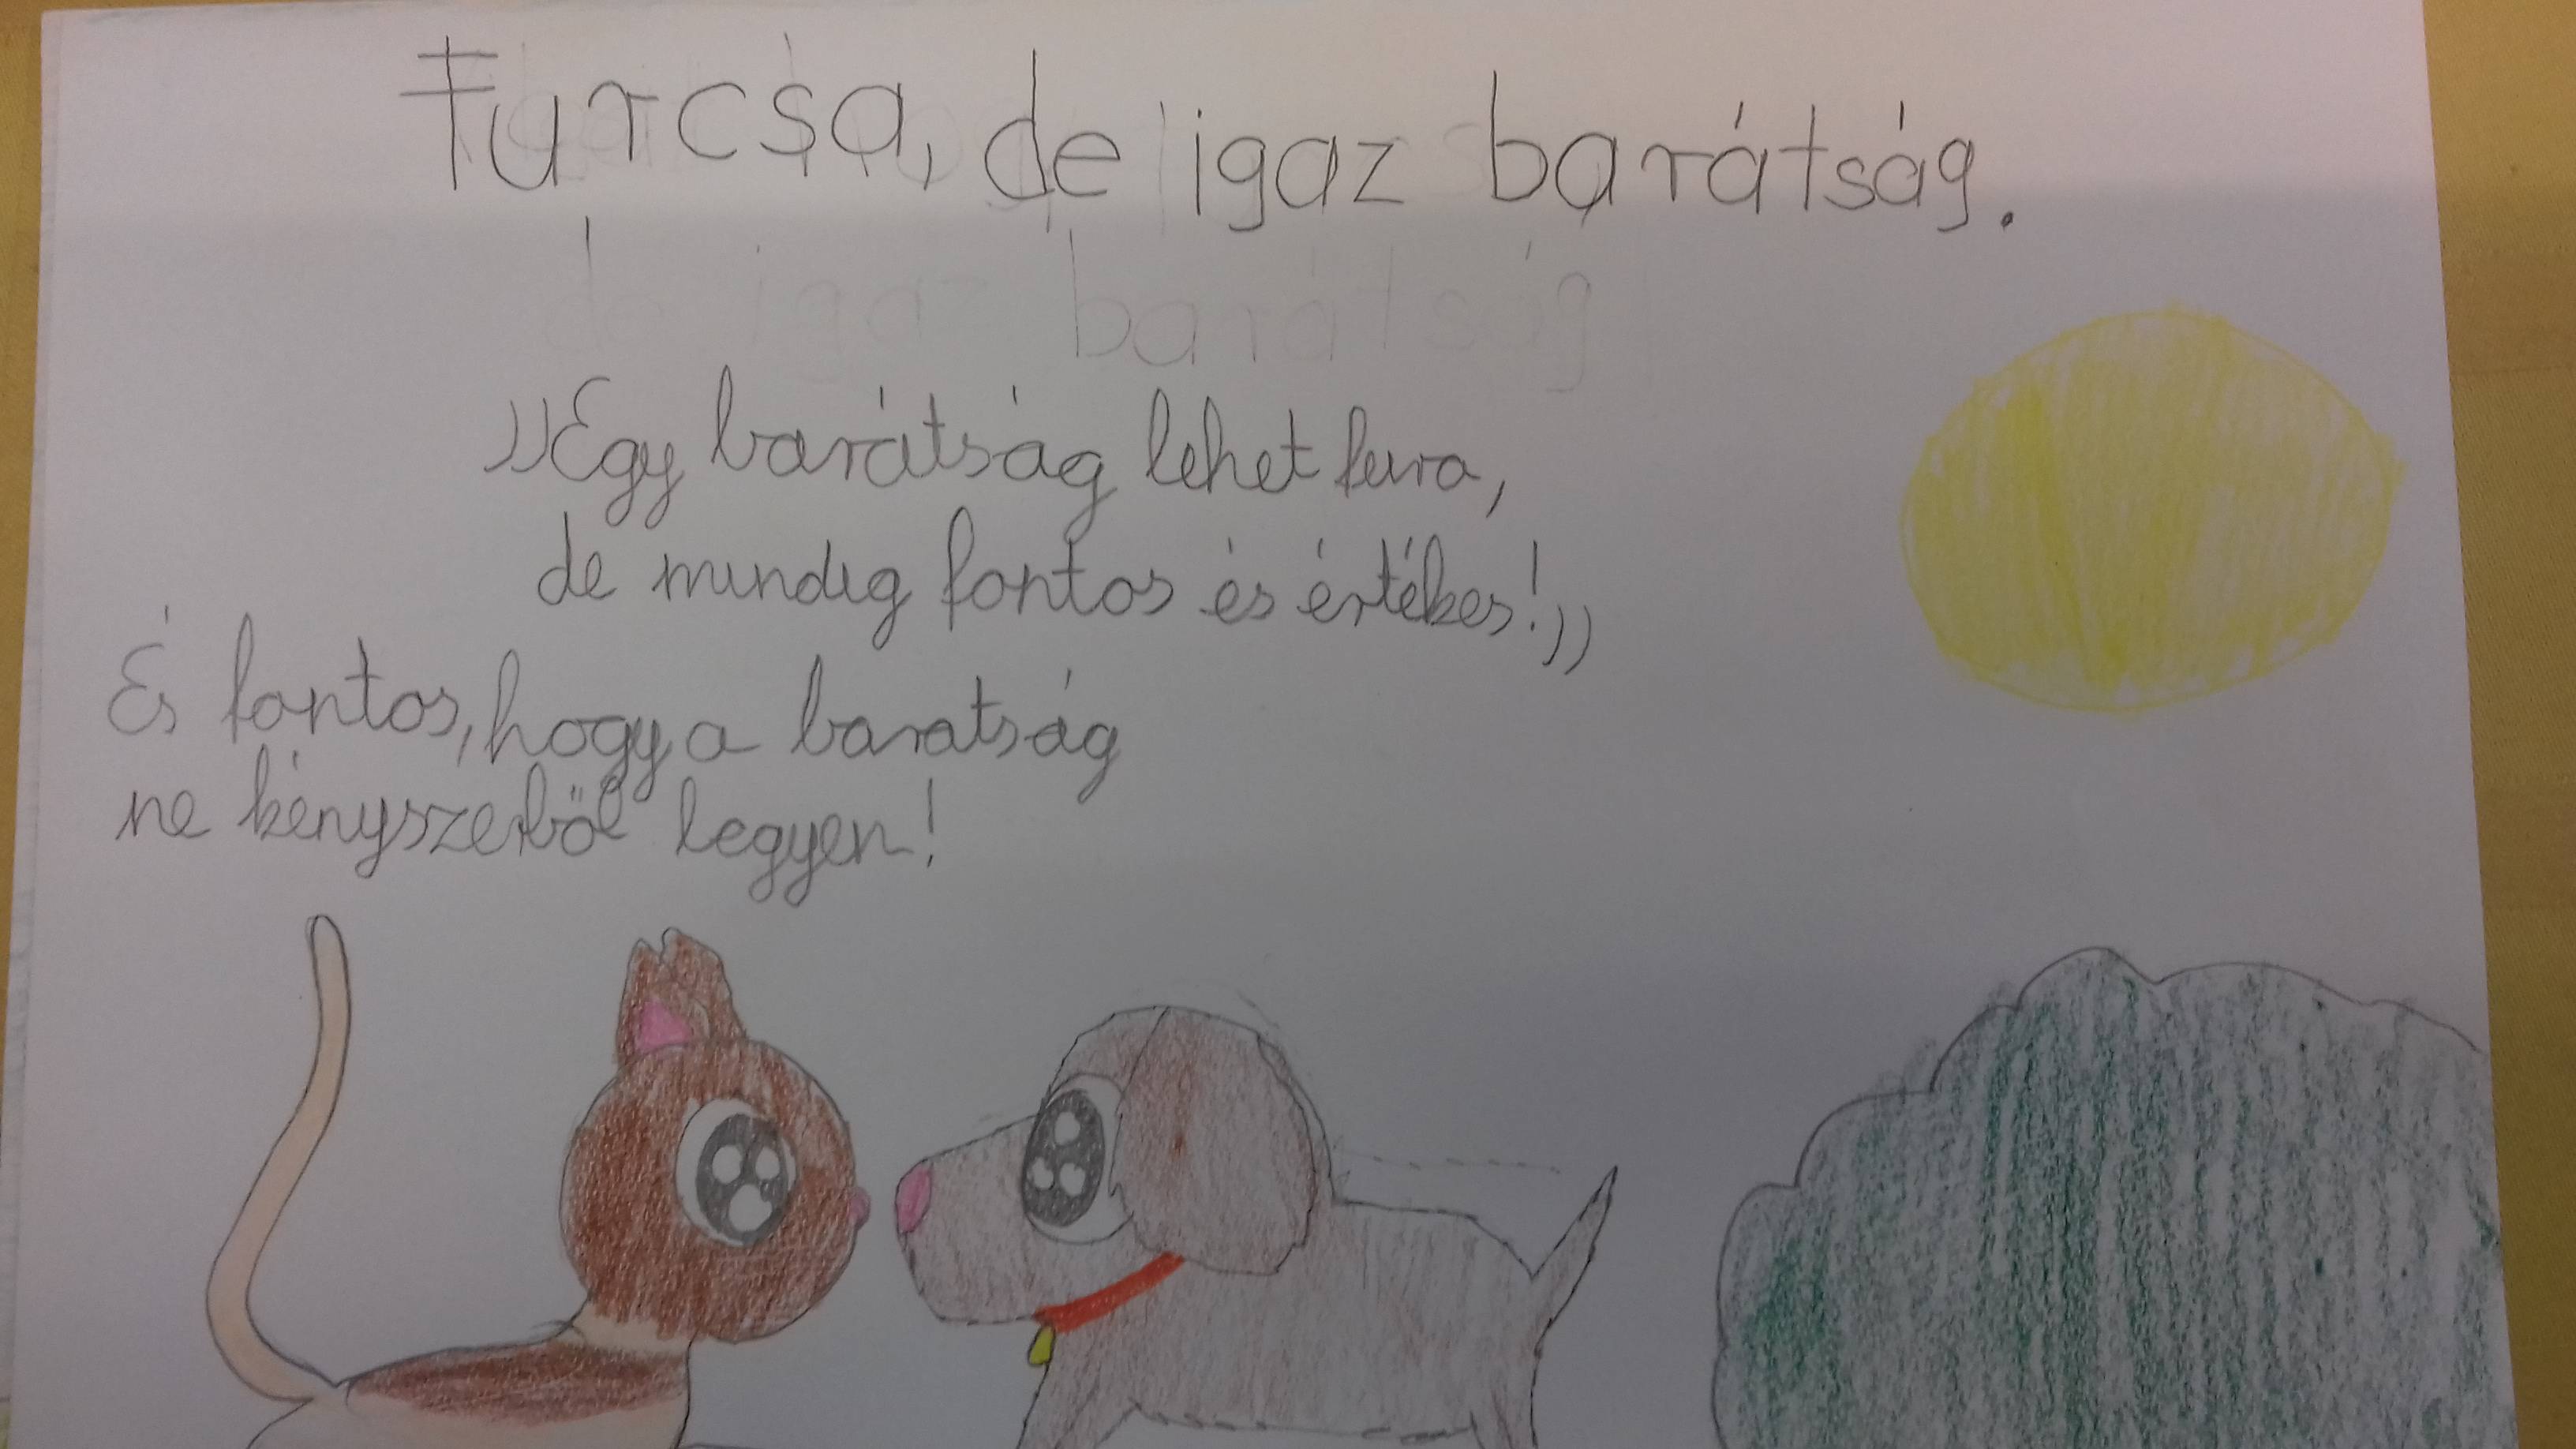 Furcsa, de igaz barátság.
de igaz barátság
„Egy barátság lehet fura,
de mindig fontos és értékes!”
És fontos, hogy a baratság
ne kényszerből legyen!